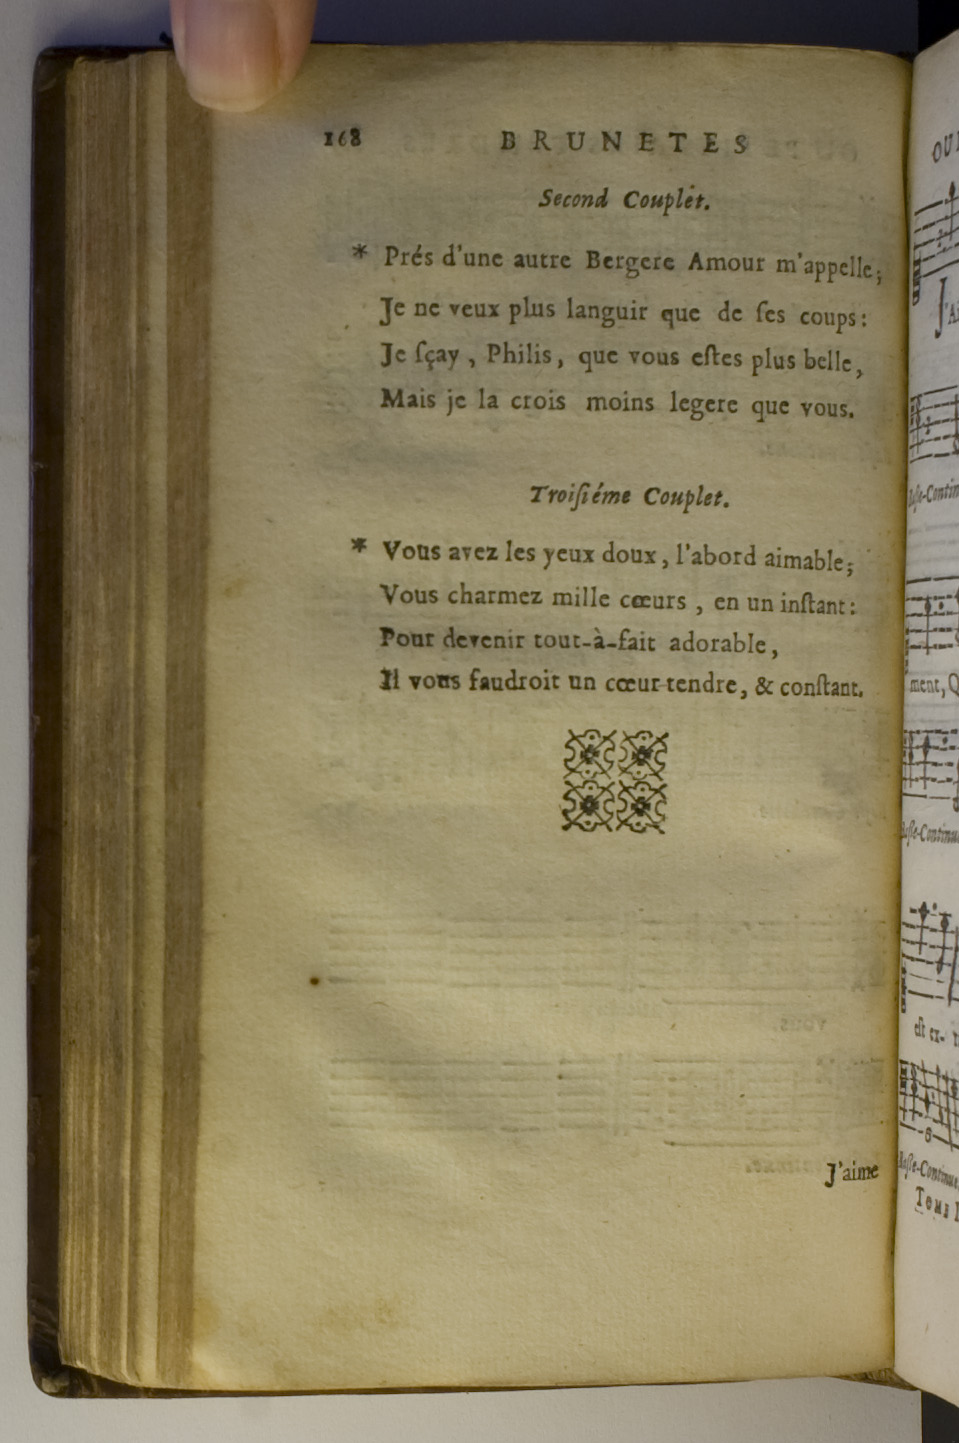 168 BRUNETES
Second Couplet.
* Prés d'une autre Bergere Amour m'appelle;
Je ne veux plus languir que de ſes coups:
Je ſçay, Philis, que vous eſtes plus belle,
Mais je la crois moins legere que vous.
Troiſiéme Couplet.
* Vous avez les yeux doux, l'abord aimable;
Vous charmez mille cœurs, en un inſtant:
Pour devenir tout-à-fait adorable,
Il vous faudroit un cœur tendre, & conſtant.
J'aime
OU
J'A
Baſſe-Contin
ment, Q
Baſſe-Continue
eſt ex-
6
Baſſe-Continue.
TOME I